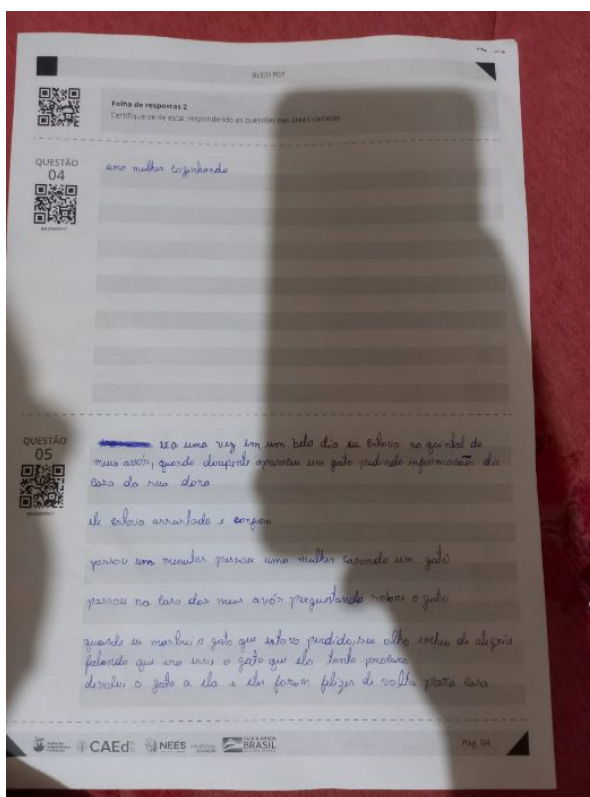 Folha de respostas 2
Certifique-se de estar respondendo as questões nas áreas corretas
QUESTÃO
04
uma mulher cozinhando
QUESTÃO
05
era uma vez em um belo dia eu Estava no quintal de
meus avós, quando derepente apareceu um gato pedindo informação da
casa da sua dona
ele estava assustado e
passou uns minutos passou uma mulher um gato
passou na casa dos meus avós perguntando sobre o gato
quando eu mostrei o gato que estava perdido, seu olho encheu de alegria
falando que era esse o gato que ela tanto
devolvi o gato a ela e eles foram felizes de volta para casa
CAEd
NEES
BRASIL
Pág. 04